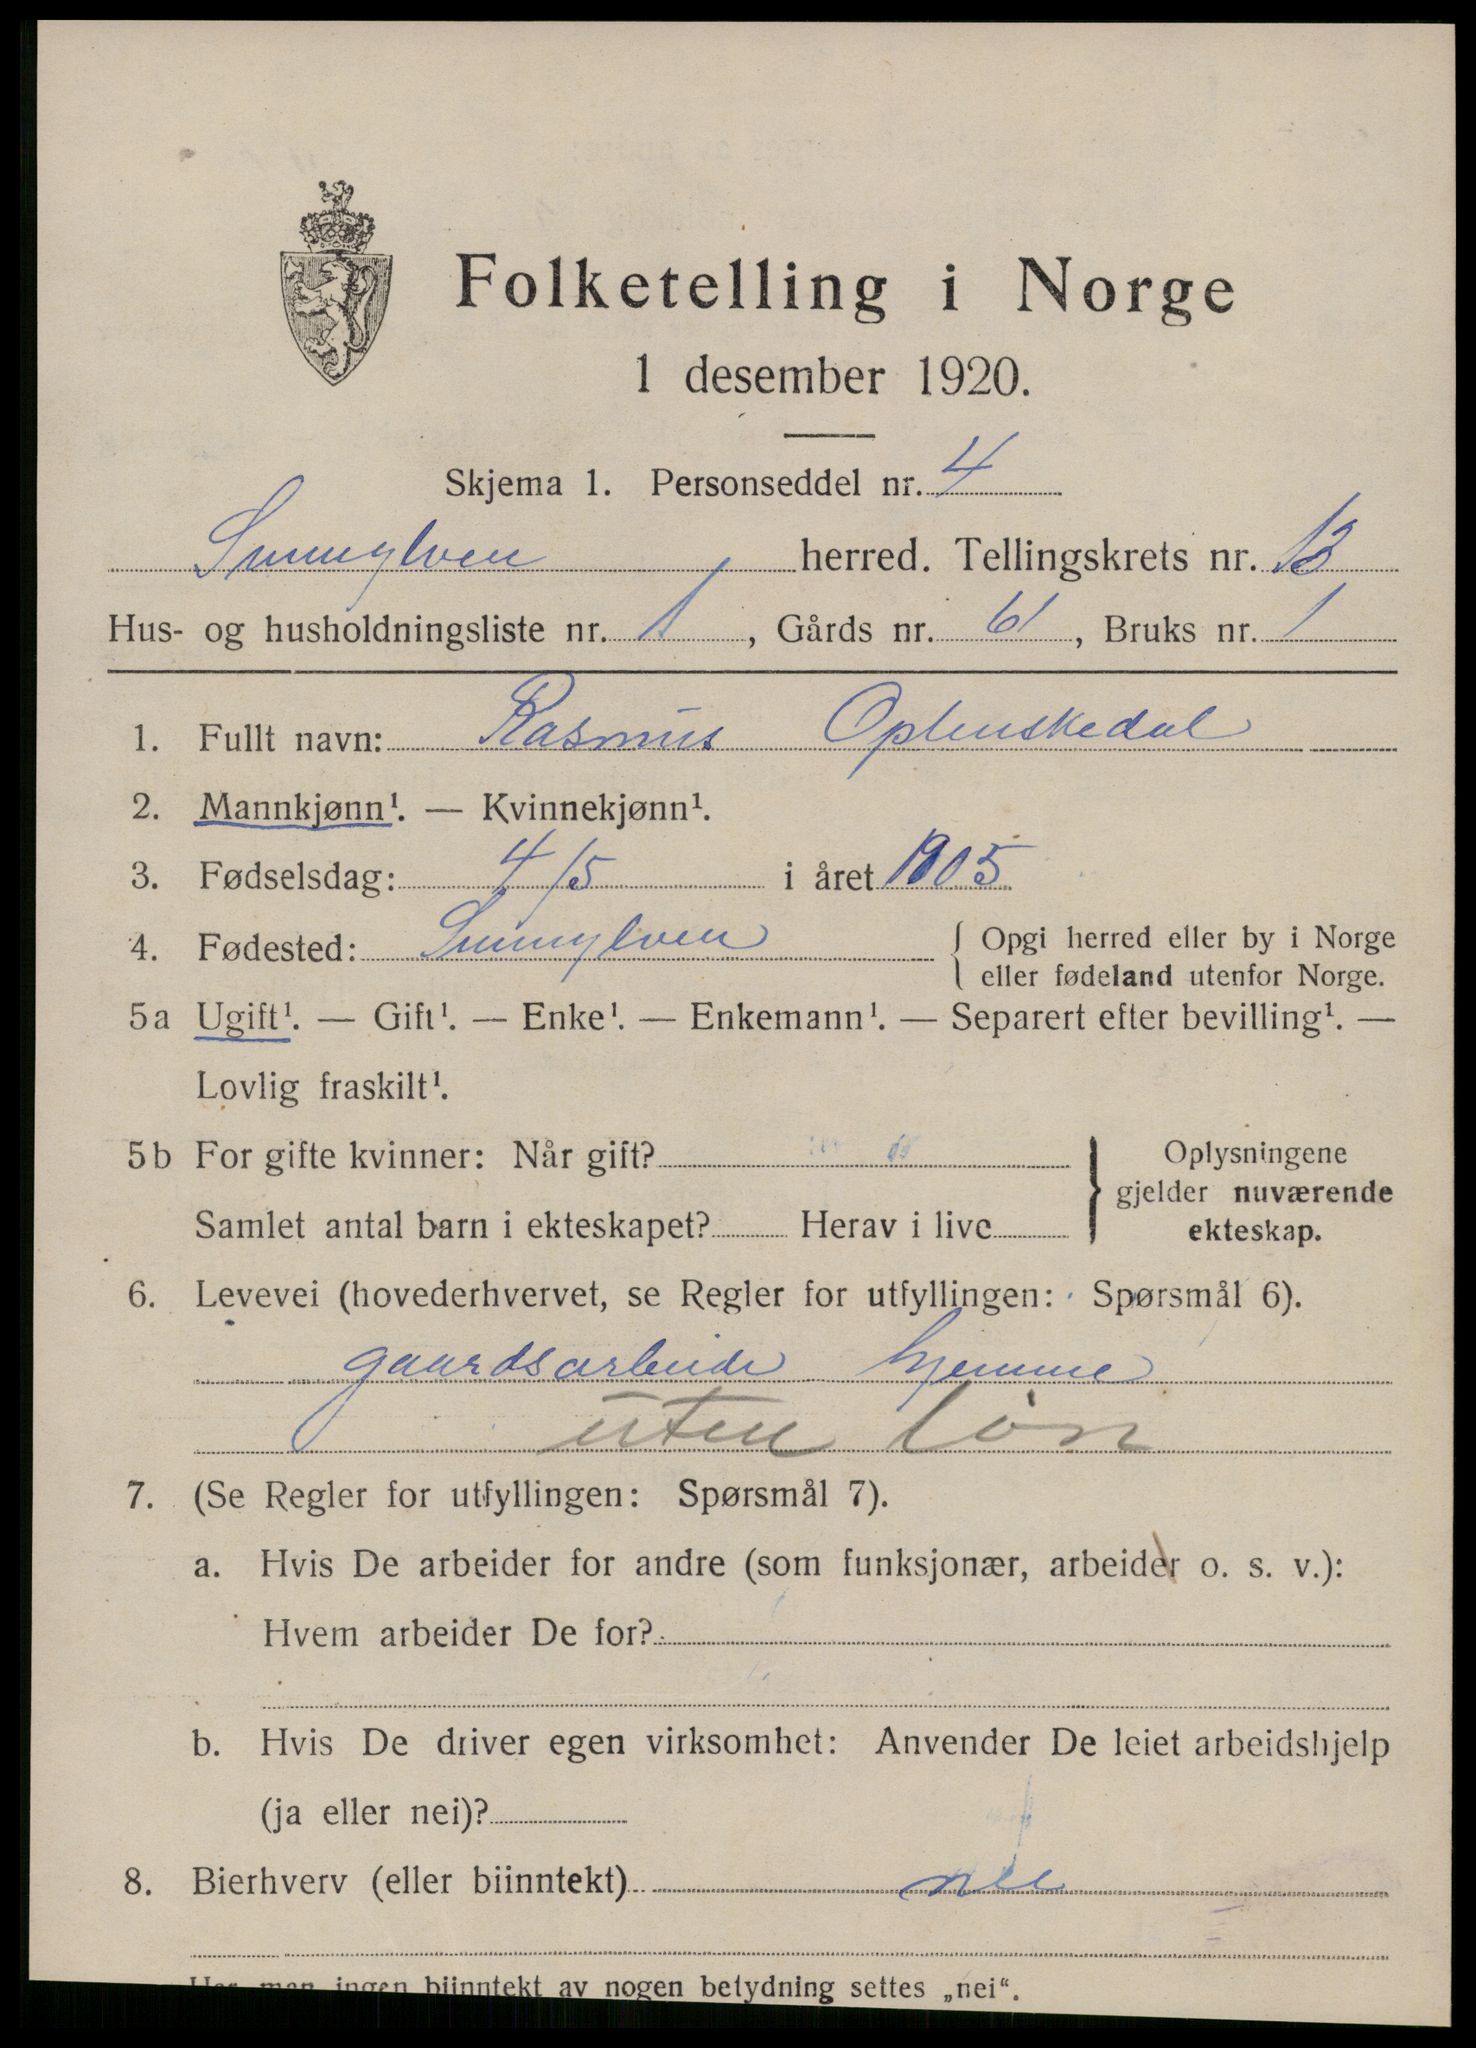 Folketelling i Norge
1 desember 1920.
Skjema 1. Personseddel nr. 4
Sunnylven herred. Tellingskrets nr. 13
Hus- og husholdningsliste nr. 1, Gårds nr. 61, Bruks nr. 1
1. Fullt navn: Rasmus Oplenskedal
2. Mannkjønn¹. — Kvinnekjønn¹.
3. Fødselsdag: 4/5 i året 1905
4. Fødested: Sunnylven { Opgi herred eller by i Norge
eller fødeland utenfor Norge.
5a Ugift¹. — Gift¹. — Enke¹. — Enkemann¹. — Separert efter bevilling¹. —
Lovlig fraskilt¹.
5b For gifte kvinner: Når gift?
Samlet antal barn i ekteskapet? Herav i live
} Oplysningene
gjelder nuværende
ekteskap.
6. Levevei (hovederhvervet, se Regler for utfyllingen: Spørsmål 6).
gaardsarbeide hjemme
uten løn
7. (Se Regler for utfyllingen: Spørsmål 7).
a. Hvis De arbeider for andre (som funksjonær, arbeider o. s. v.):
Hvem arbeider De for?
b. Hvis De driver egen virksomhet: Anvender De leiet arbeidshjelp
(ja eller nei)?
8. Bierhverv (eller biinntekt) nei
Har man ingen biinntekt av nogen betydning settes „nei“.